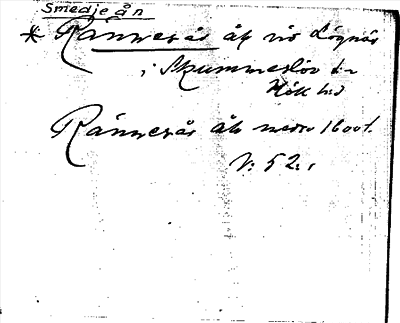 Smedje ån
* Rännesås åk vid Lögnäs
i Skummeslöv sn
Hök hd
Rännesås åk nedre 1600t.
V: 52.